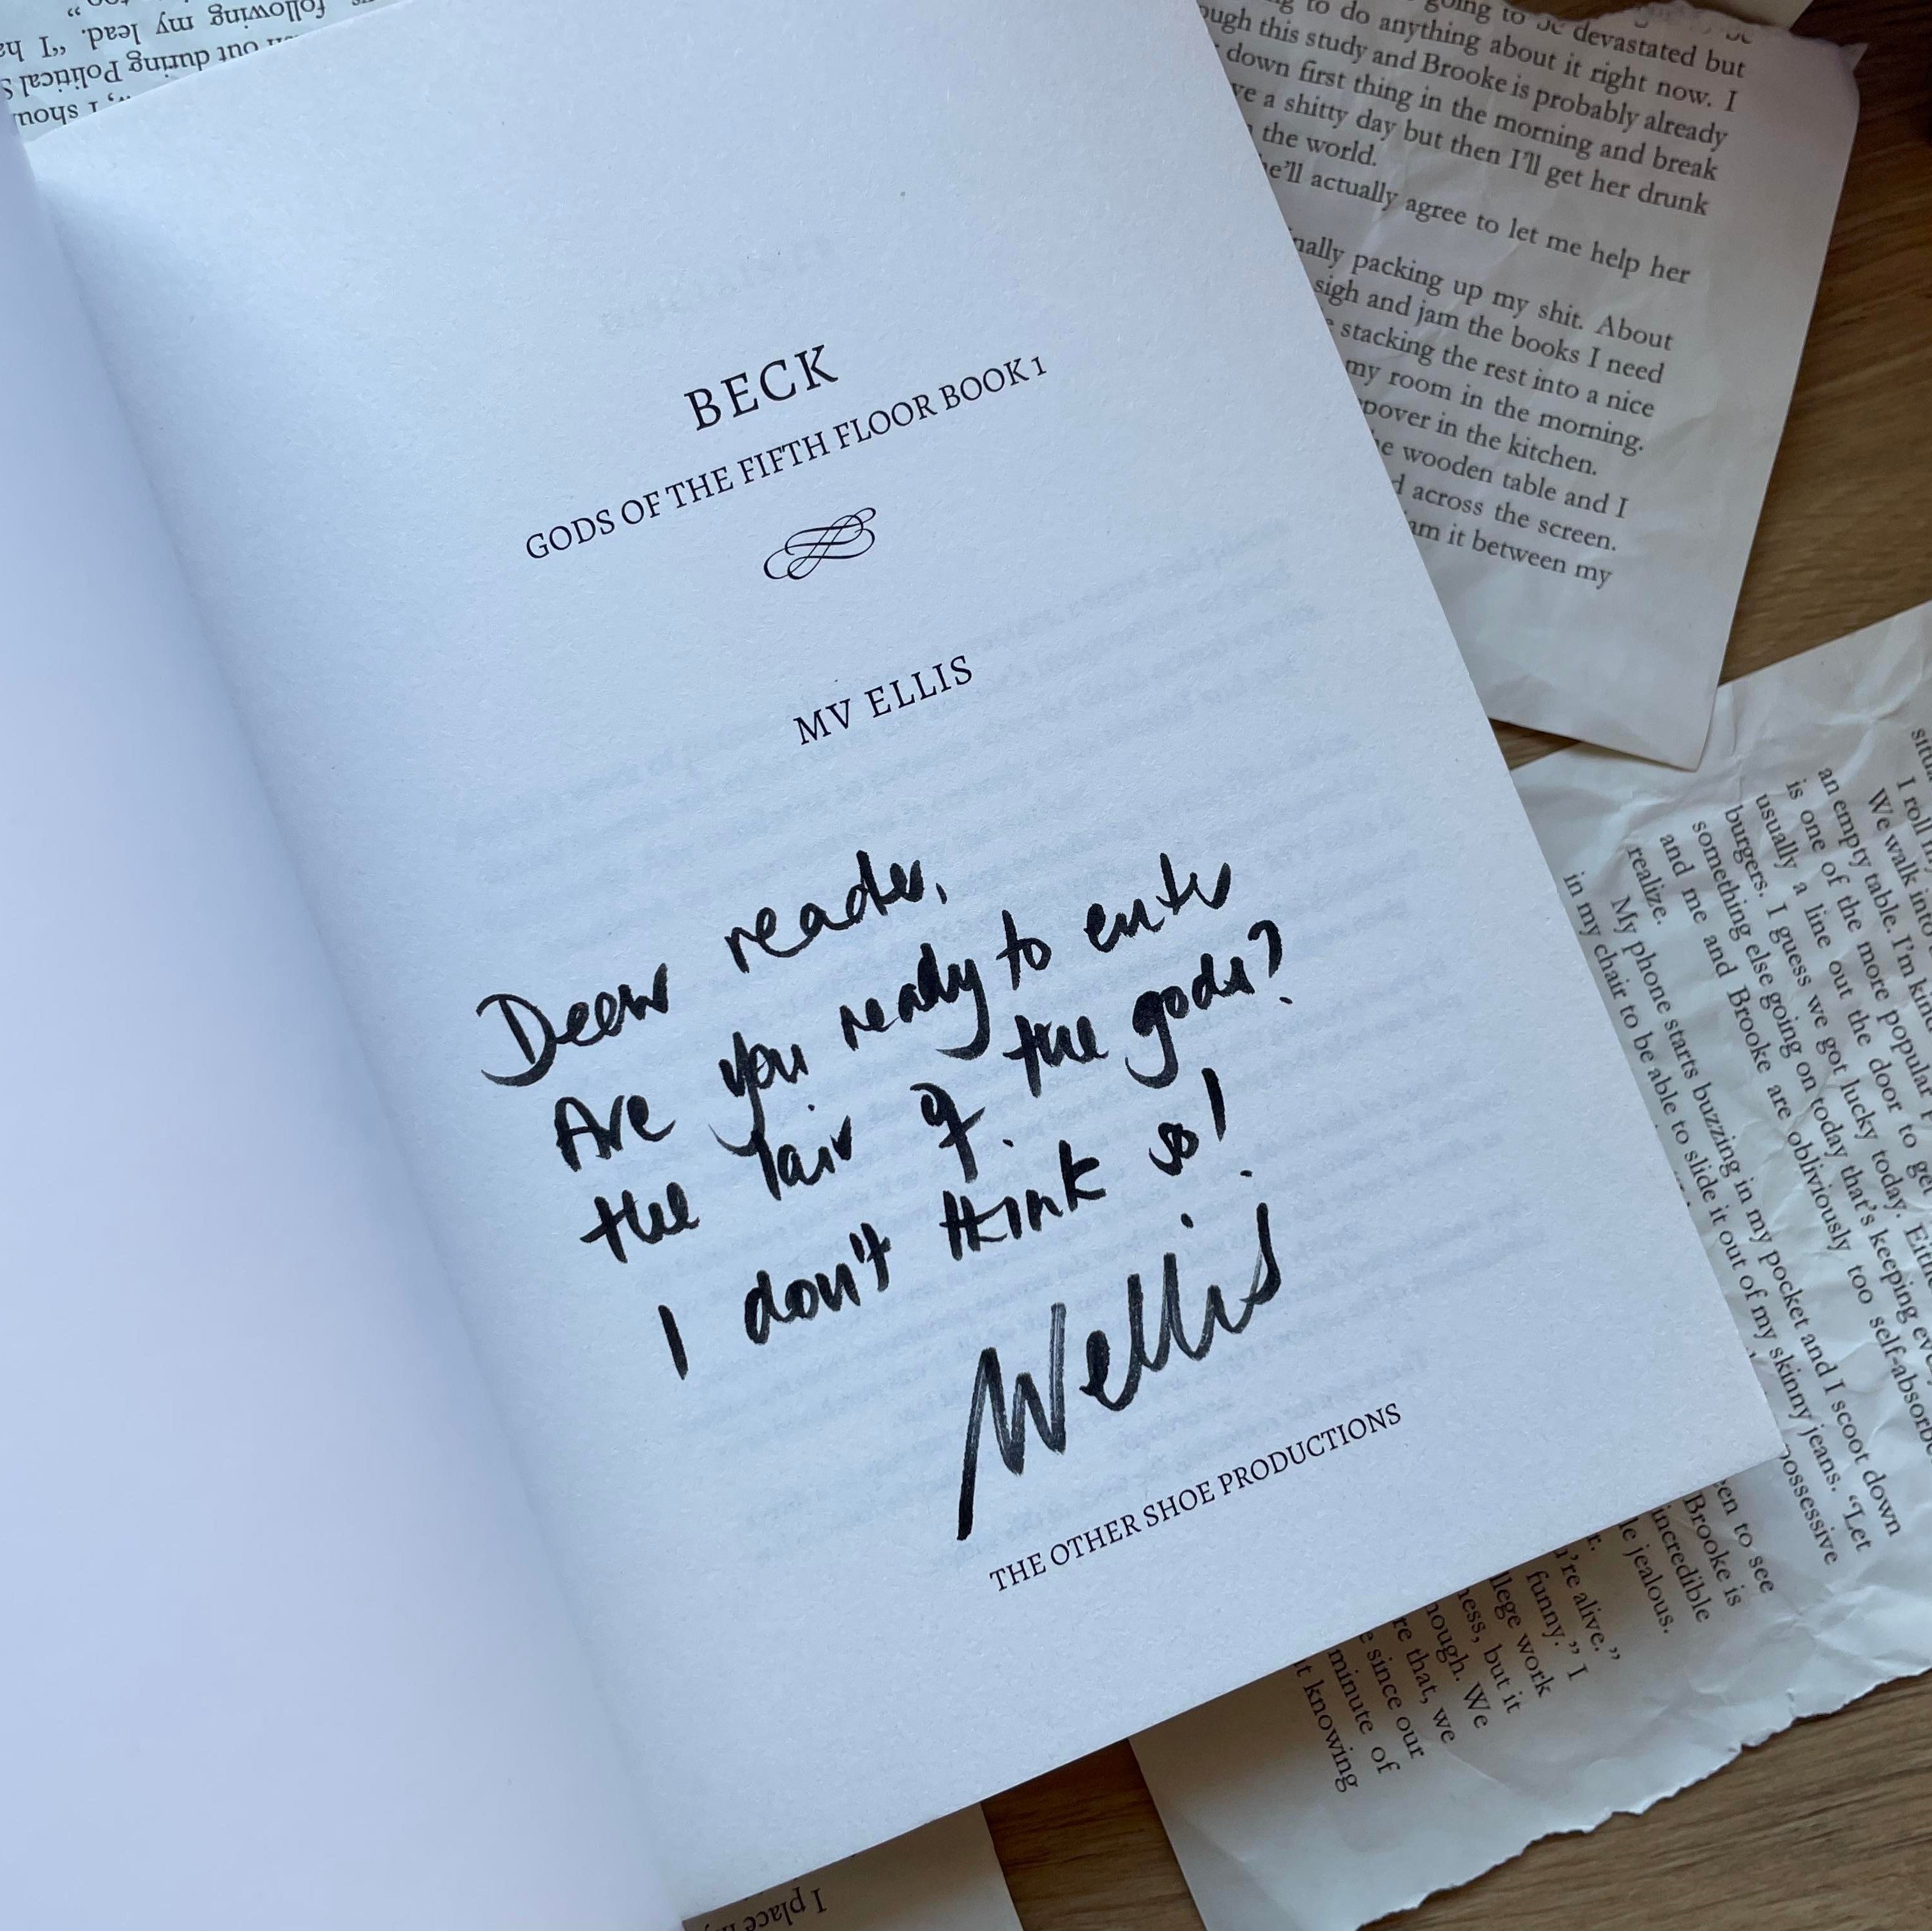 BECK
GODS OF THE FIFTH FLOOR BOOK 1
MV ELLIS
Dear reader,
Are you ready to enter
the lair of the gods?
I don't think so!
MVellis
THE OTHER SHOE PRODUCTIONS
following my lead. "I ha
out during Political S
I shou
going to be devastated but
to do anything about it right now. I
ough this study and Brooke is probably already
down first thing in the morning and break
ve a shitty day but then I'll get her drunk
the world.
he'll actually agree to let me help her
nally packing up my shit. About
sigh and jam the books I need
stacking the rest into a nice
my room in the morning.
pover in the kitchen.
he wooden table and I
d across the screen.
am it between my
I roll
We walk into
an empty table. I'm kind
is one of the more popular
usually a line out the door to get
burgers. I guess we got lucky today. Eith
something else going on today that's keeping eve
and me and Brooke are obliviously too self-absorbe
realize.
My phone starts buzzing in my pocket and I scoot down
in my chair to be able to slide it out of my skinny jeans. "Let
possessive
en to see
Brooke is
incredible
le jealous.
r.
're alive."
funny." I
llege work
ness, but it
nough. We
re that, we
e since our
minute of
t knowing
I place